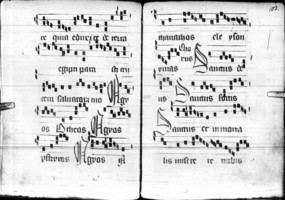 te quia eduxi te de terra
egypti parasti cru
cem salvatori tuo Agy
os Otheos Agyos
yschyros Agyos
103.
athanathos eleyson
Cho
rus Sanctus de
us Sanctus fortis
Sanctus et immorta
lis misere re nobis